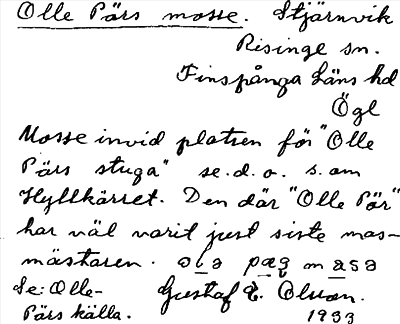 Olle Pärs mosse. Stjärnvik
Risinge sn.
Finspånga Läns hd
Ögl
Mosse invid platsen för "Olle
Pärs stuga" se. d. o. s. om
Hyllkärret. Den där "Olle Pär"
har väl varit just siste mas-
mästaren.
Se: Olle- Gustaf E. Olsson.
Pärs källa. 1933